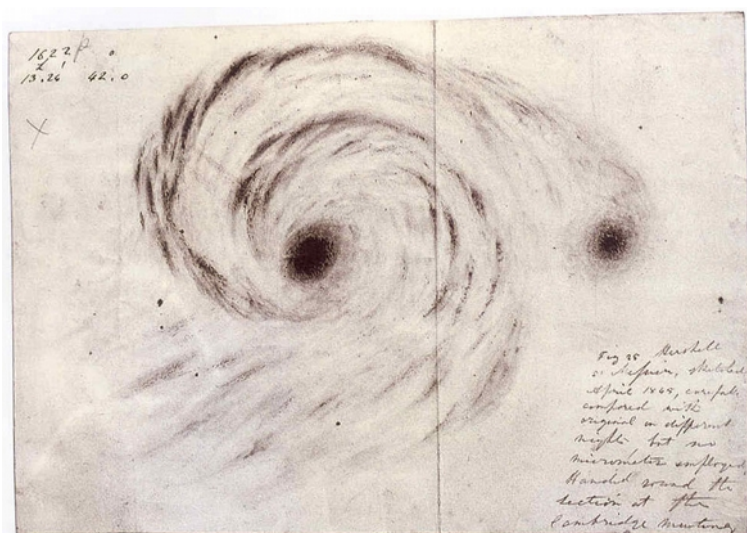 1622
13.26 42.0
X
Fig 25 Herschell
51 Messier, sketched
April 1845, carefully
compared with
original on different
nights but no
micrometer employed
Handed round the
section at the
Cambridge meeting